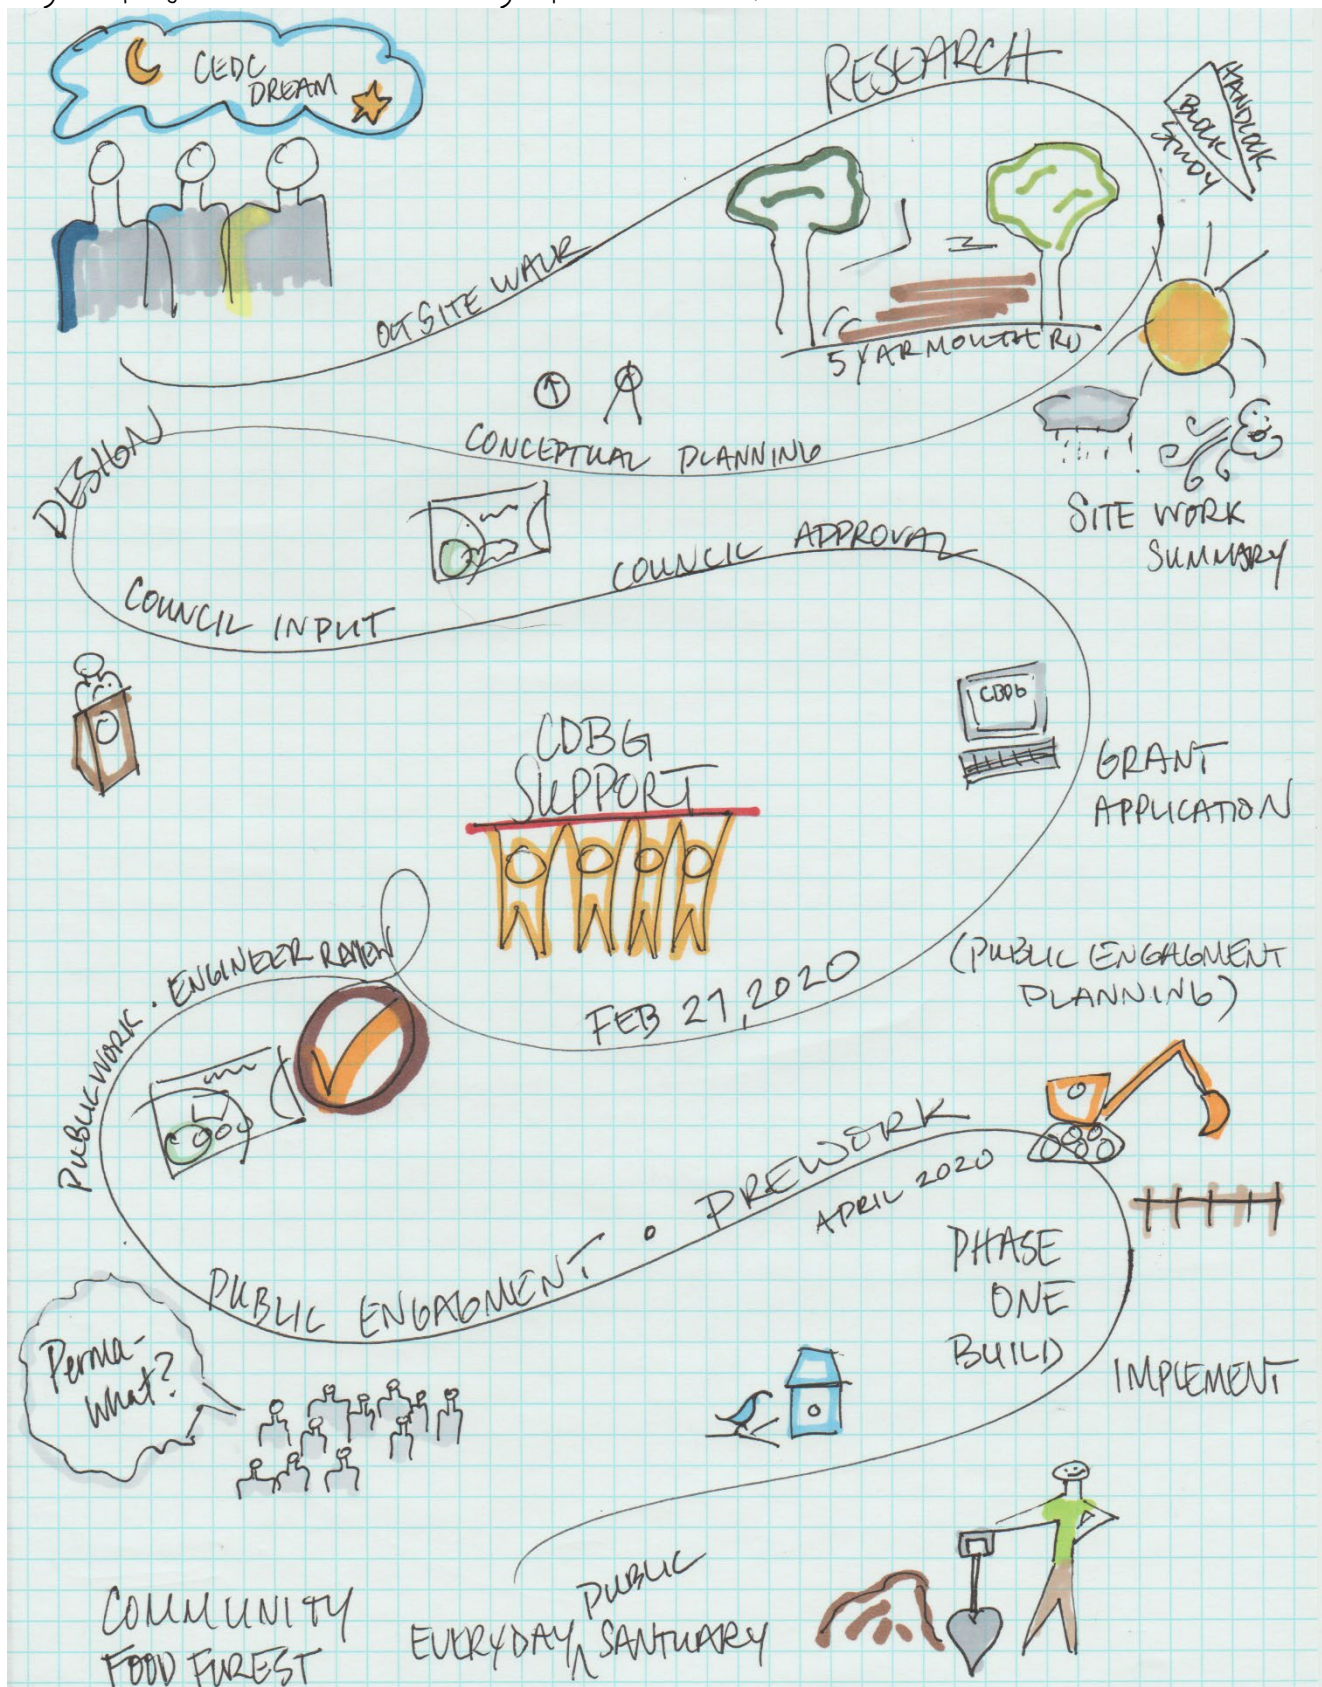 CEDC
DREAM
RESEARCH
BLOCK
STUDY
OCT SITE WALK
5 YARMOUTH RD
CONCEPTUAL PLANNING
DESIGN
SITE WORK
SUMMARY
COUNCIL INPUT
COUNCIL APPROVAL
CDBG
SUPPORT
GRANT
APPLICATION
(PUBLIC ENGAGMENT
PLANNING)
FEB 27, 2020
PUBLIC WORK • ENGINEER REVIEW
PUBLIC ENGAGMENT • PREWORK
APRIL 2020
PHASE
ONE
BUILD
IMPLEMENT
Perma-
What?
COMMUNITY
FOOD FUREST
EVERYDAY ^ PUBLIC SANTUARY